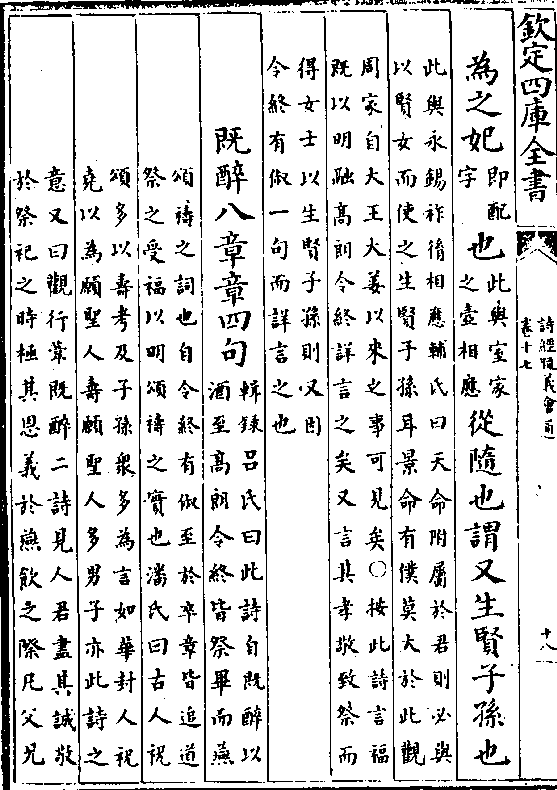 欽定四庫全書
詩經疏義會通
卷十七
十八
為之妃即配
字也此與室家
之壼相應從隨也謂又生賢子孫也
此與永錫祚胤相應輔氏曰天命附屬於君則必與
以賢女而使之生賢子孫耳景命有僕莫大於此觀
周家自大王大姜以來之事可見矣○按此詩言福
既以明融高朗令終詳言之矣又言其孝敬致祭而
得女士以生賢子孫則又因
令終有俶一句而詳言之也
既醉八章章四句輯錄呂氏曰此詩自既醉以
酒至高朗令終皆祭畢而燕
頌禱之詞也自令終有俶至於卒章皆追道
祭之受福以明頌禱之實也潘氏曰古人祝
頌多以壽考及子孫衆多為言如華封人祝
堯以為願聖人壽願聖人多男子亦此詩之
意又曰觀行葦既醉二詩見人君盡其誠敬
於祭祀之時極其恩義於燕飲之際凡父兄